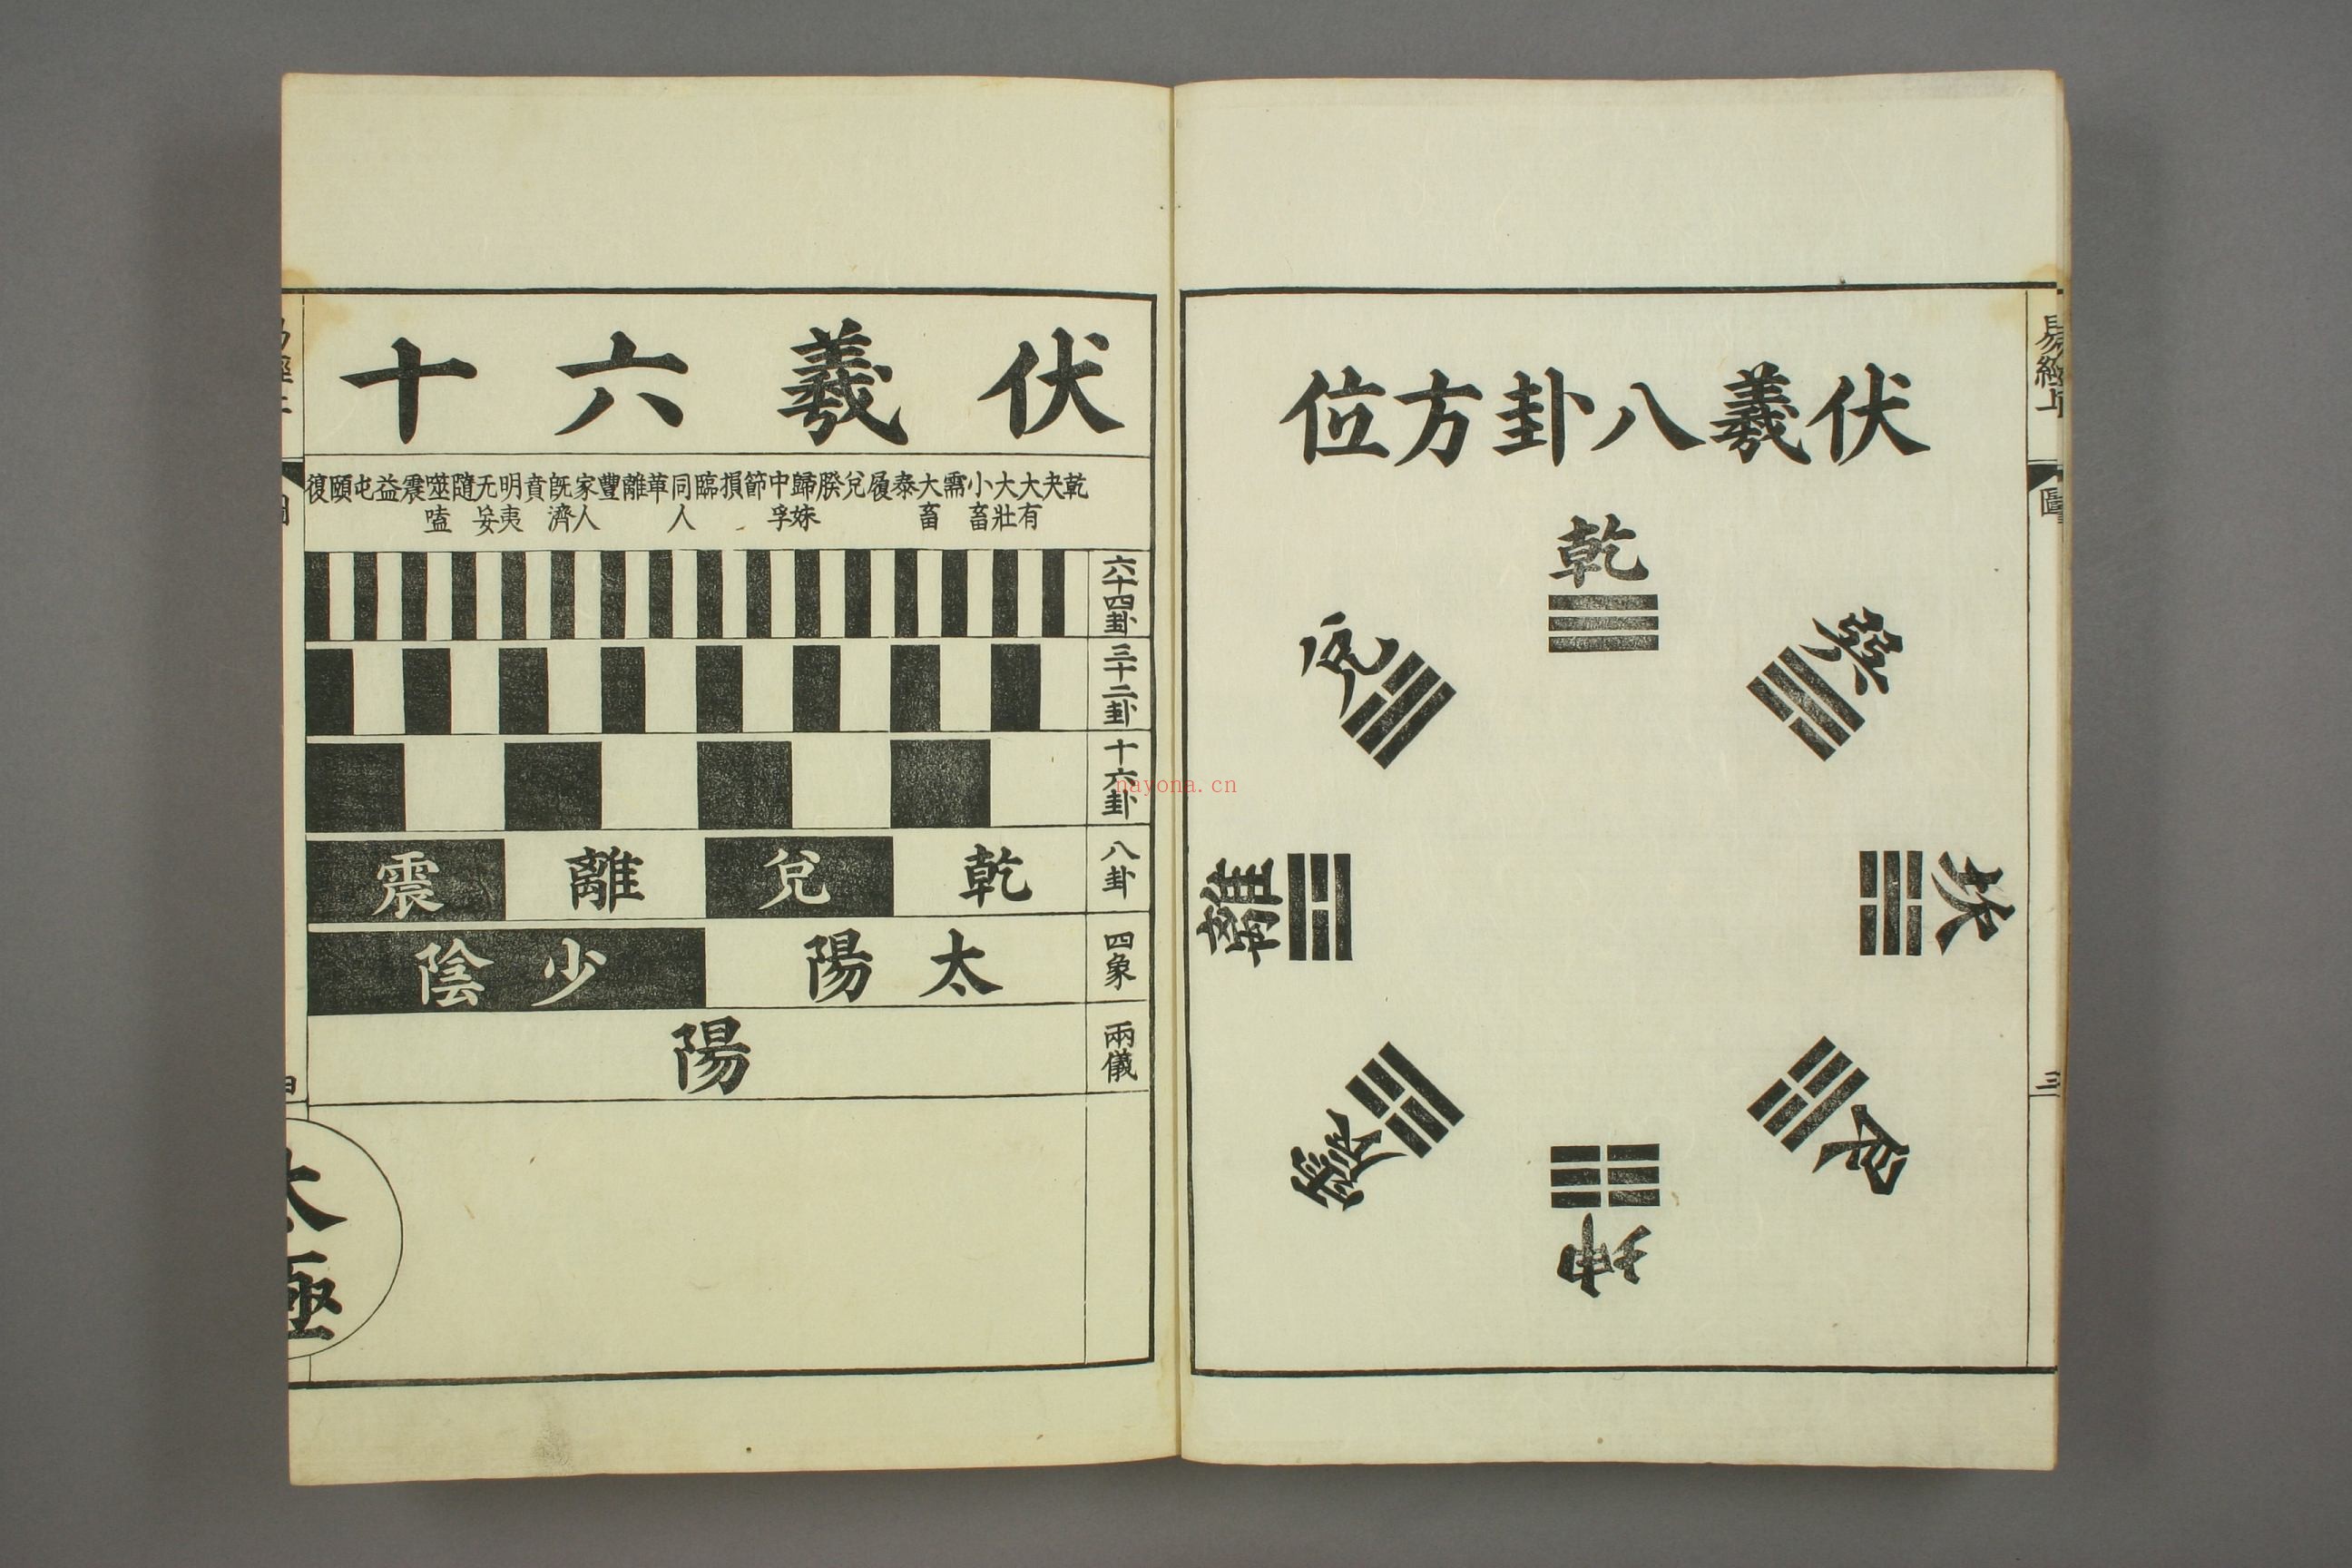 易經上
圖
三
伏羲八卦方位
乾
兌
巽
離
坎
震
艮
坤
伏羲六十
乾 夬 大有 大壯 小畜 需 大畜 泰 履 兌 睽 歸妹 中孚 節 損 臨 同人 革 離 豐 家人 既濟 賁 明夷 无妄 隨 噬嗑 震 益 屯 頤 復
六十四卦
三十二卦
十六卦
八卦
乾 兌 離 震
四象
太陽 少陰
兩儀
陽
太極
nayona.cn